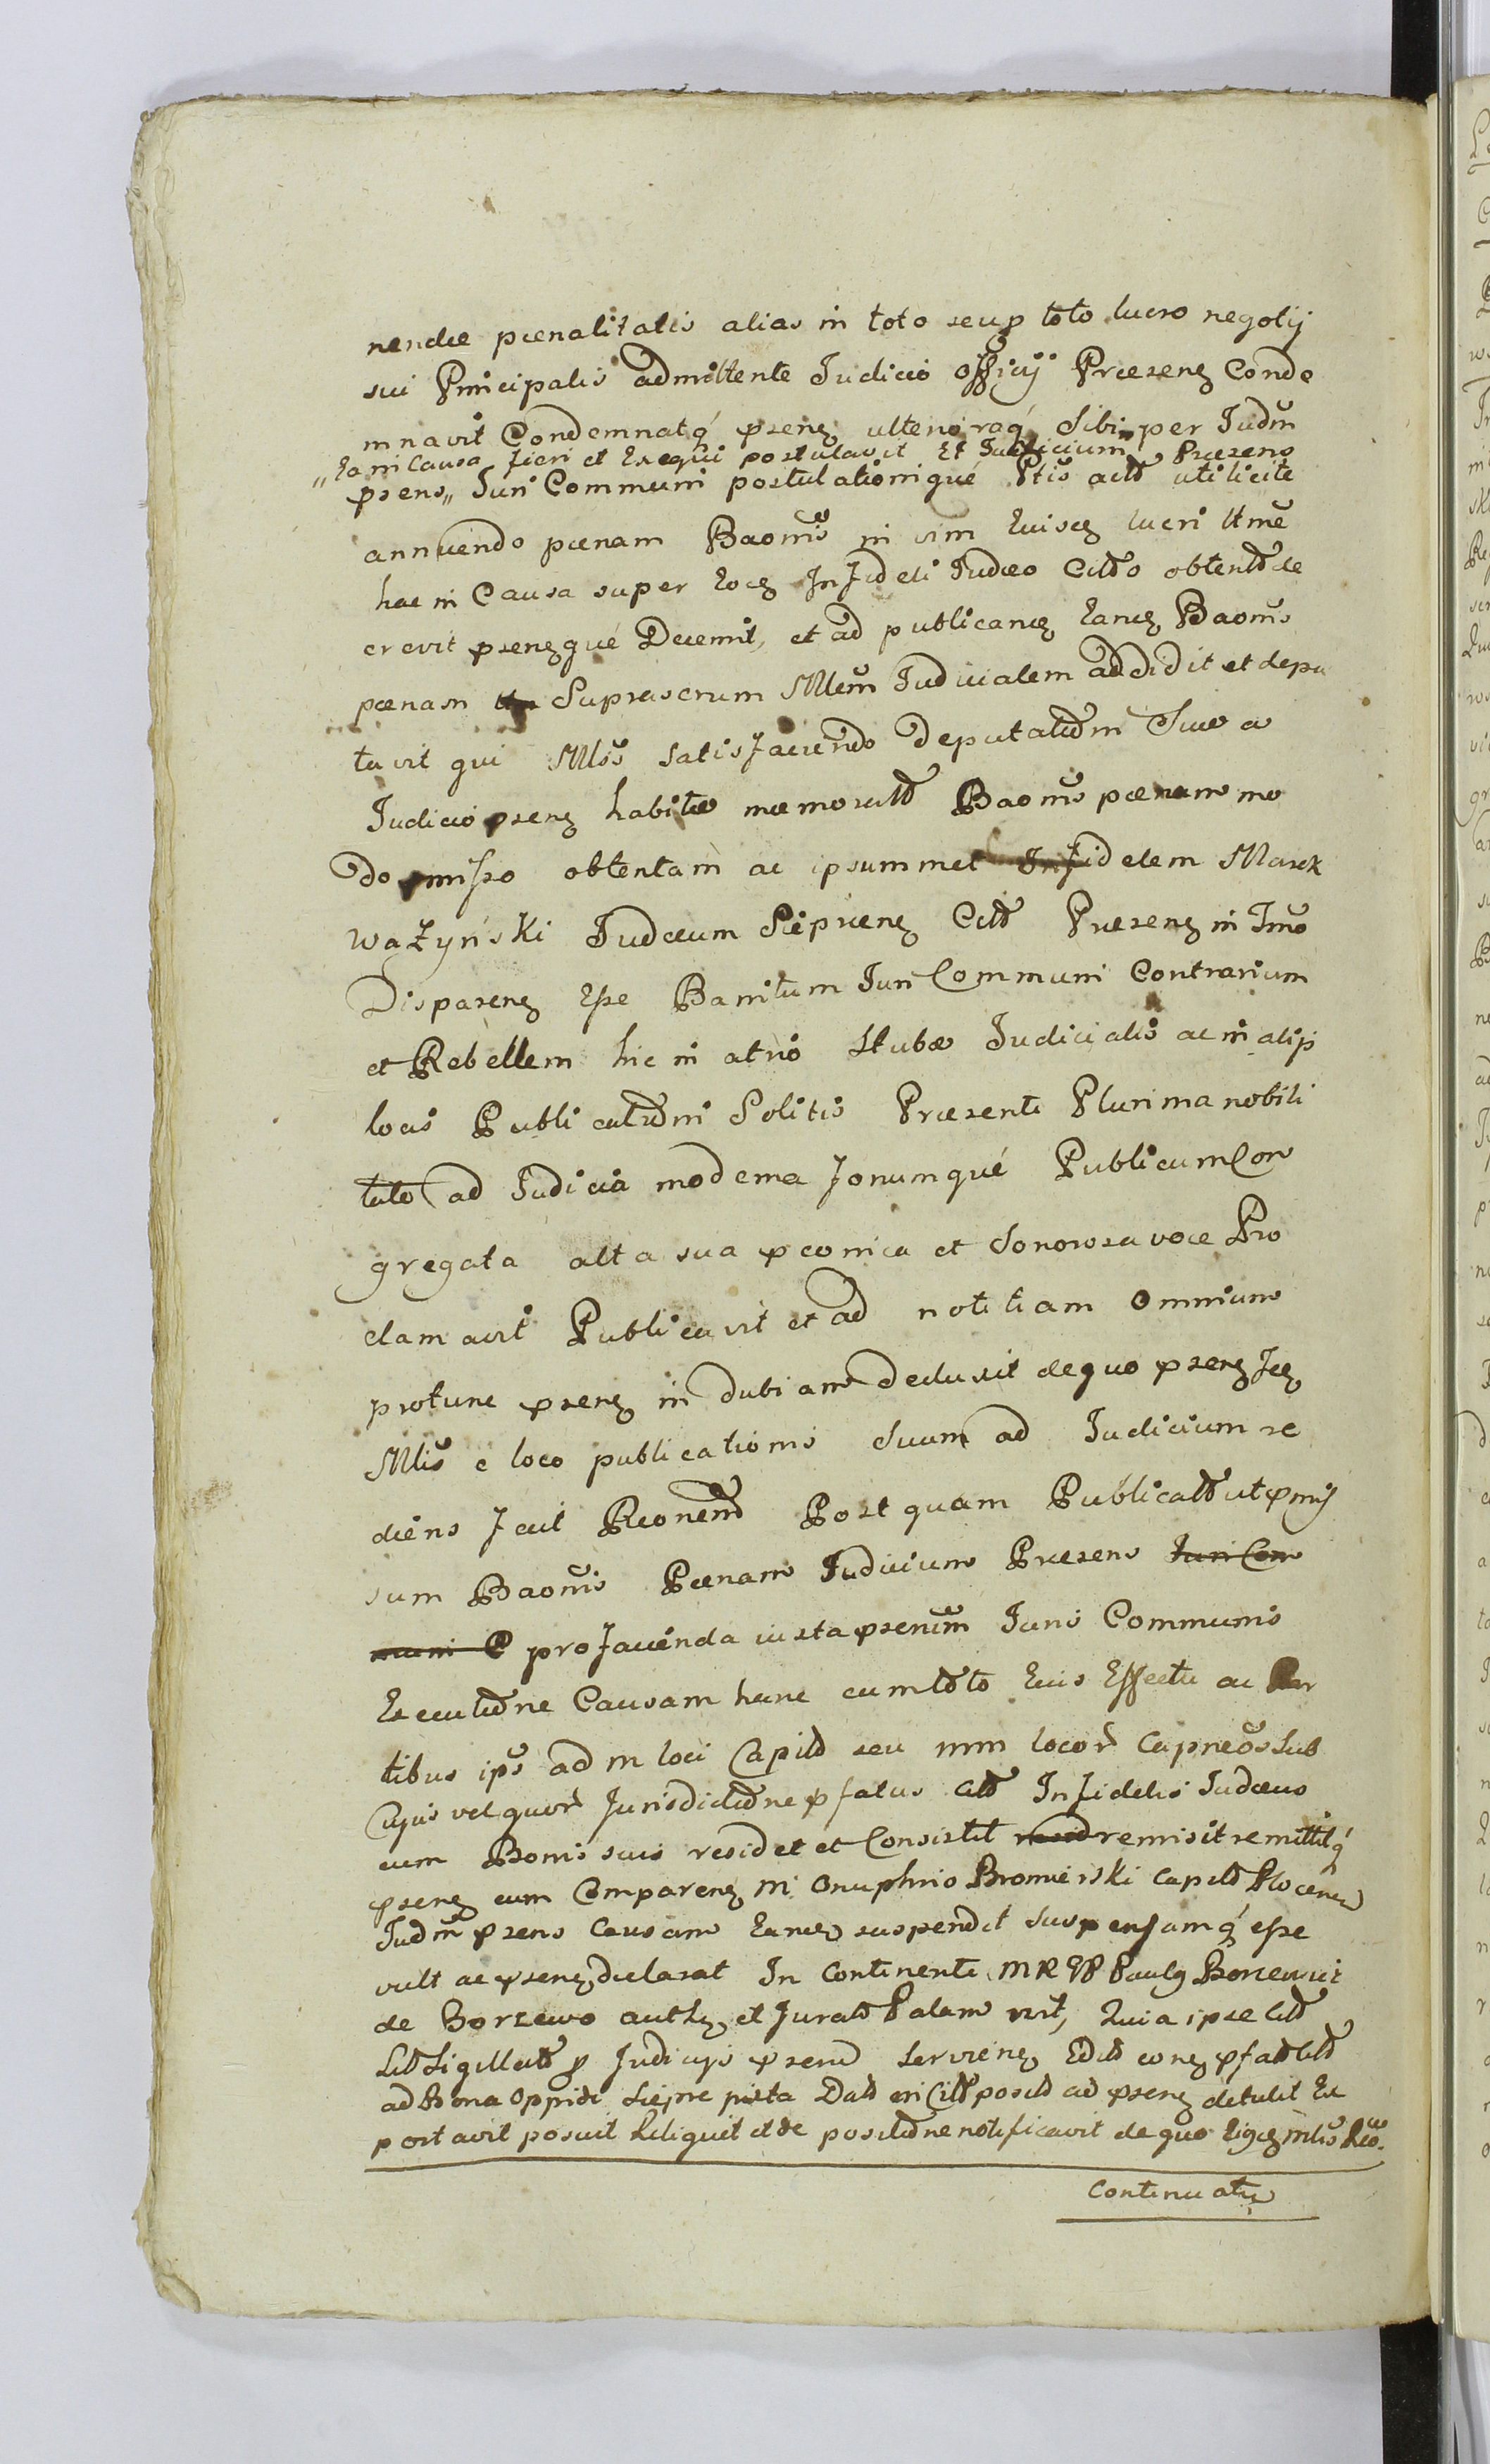 nendæ pœnalitatis alias in toto seu p toto lucro negotij
sui Principalis admittente Judicio Officij Præsenz Conde
mnavit Condemnatq́ psenz ulterioraq́ Sibi per Judm̃
„Ea in Causa fieri et Exequi postulavit Et Judicium Præsens
psens„ Juri Communi postulationiqué Ptis actð utilicite
annuendo pœnam Baonis̃ in vim huiscz lucri Ltmẽ
hac in Causa super hocz Infideli Judæo Cittðo obtentð de
crevit psenzqué Decernit, et ad publicancz hancz Baonis̃
pœnam Suprascrum Mlem̃ Judicialem addidit et depu
tavit qui Mlis̃ satisfaciendo deputatðni Suæ a
Judicio psenz habitæ memoratð Baonis̃ pœnam mo
do pmisso obtentam ac ipsummet Infidelem Marek
Wążyński Judæum Sieprcenz Cittð Præsenz in Tmõ
Disparenz Esse Banitum Juri Communi Contrarium
et Rebellem hic in atrio Stubæ Judicialis ac in alijs
locis Publicatðni Solitis Præsente Plurima nobili
tate ad Judicia moderna forumqué Publicum Con
gregata alta sua pconica et Sonorosa voce Pro
clamavit Publicavit et ad notitiam omnium
protunc psenz indubiam deduxit de quo psenz Jcz
Mlis̃ e loco publicationis suum ad Judicium re
diens fecit Reonem̃ Post quam Publicatð ut pmis
sum Baonis̃ Pœnam Judicium Præsens Juri Com
muni P pro facienda iuxta psenum̃ Juris Communis
Executðne Causam hanc cum tðto Eius Effectu ac Par
tibus ips̃ ad m loci Capitð seu mm locor̃ Capneos̃ Sub
Cujus vel quor̃ Jurisdictðne pfatus Cittð Infidelis Judæus
cum Bonis suis residet et Consistit remisit remittitq́
psenz cum Comparenz M. Onuphrio Bromierski Capitð Plocenz
Judm̃ psens Causam hancz suspendit suspensamq́ esse
vult ac psenz declarat In Continenti MR GP Paulg Borzewski
de Borzewo auth et Juratð Palam rvit, Quia ipse Littð
Litð Sigillatð p Judicijs psend Servienz Editð conz pfatð Cittð
ad Bona Oppidi Sieprc juxta Datð in Cittð positð ad psenz detulit Ex
portavit posuit Reliquit et de positðne notificavit de quo Eigcz mlis̃ Reõ.
Continuatu